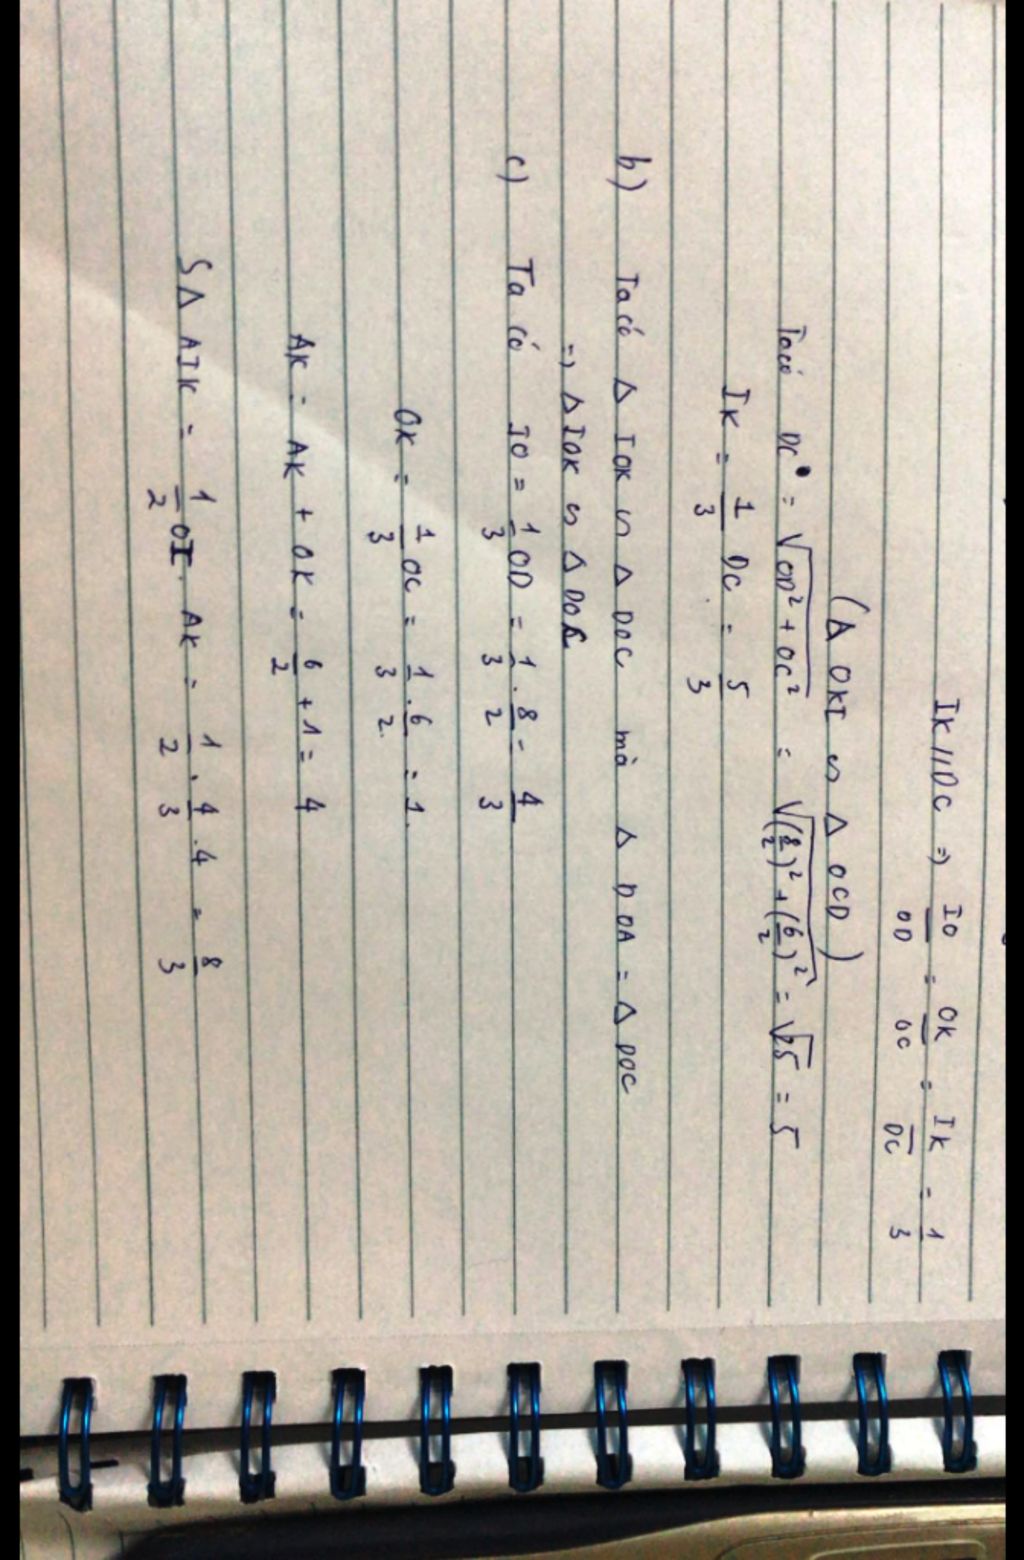 IK // DC => IO/OD = OK/OC = IK/DC = 1/3
(Δ OKI ∽ Δ OCD)
Ta có DC = √(OD² + OC²) = √((8/2)² + (6/2)²) = √25 = 5
IK = 1/3 DC = 5/3
b) Ta có Δ IOK ∽ Δ DOC mà Δ DOA = Δ DOC
=> Δ IOK ∽ Δ DOA
c) Ta có IO = 1/3 OD = 1/3 . 8/2 = 4/3
OK = 1/3 OC = 1/3 . 6/2 = 1.
AK = AK + OK = 6/2 + 1 = 4
SΔ AIK = 1/2 OI . AK = 1/2 . 4/3 . 4 = 8/3